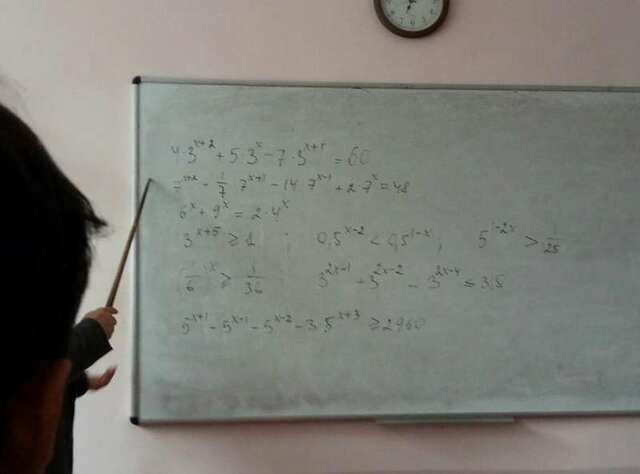 4·3^{x+2} + 5·3^x - 7·3^{x+1} = 60
7^{x+2} - 1/7 · 7^{x+1} - 14·7^{x-1} + 2·7^x = 48
6^x + 9^x = 2·4^x
3^{x+5} ≥ 1 ; 0,5^{x-2} < 0,5^{1-x} ; 5^{1-2x} > 1/25
(1/6)^x ≥ 1/36 3^{2x-1} + 3^{2x-2} - 3^{2x-4} ≤ 315
5^{x+1} - 5^{x-1} - 5^{x-2} - 3·5^{x+3} ≥ 2960